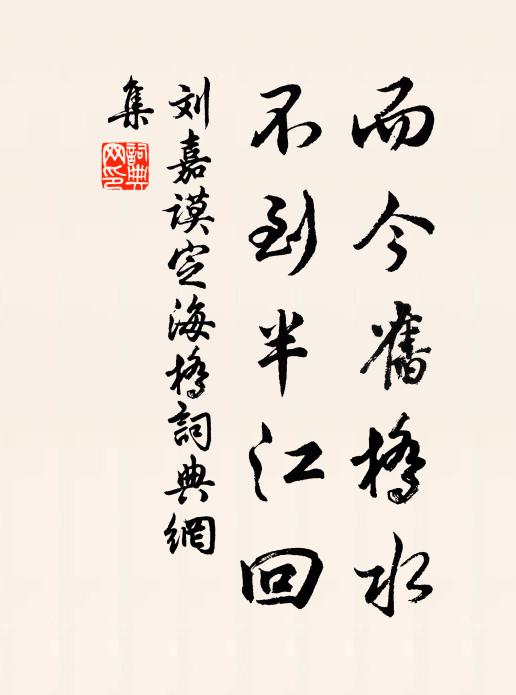 而今舊橋水
不到半江回
刘嘉謨定海橋詞典網
集
詞典網印